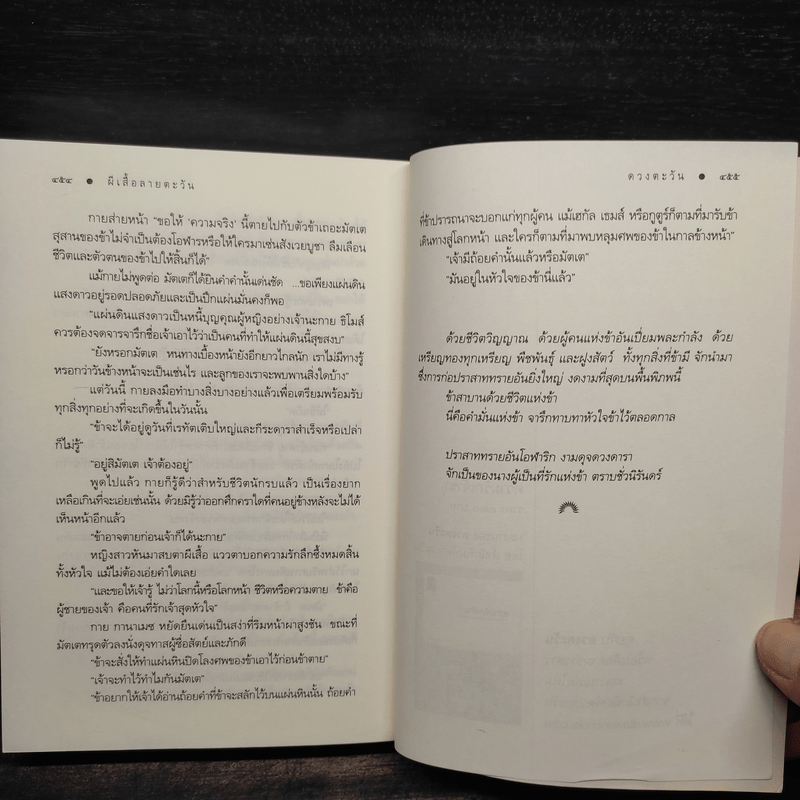 ๔๕๔ ● ผีเสื้อลายตะวัน
กายส่ายหน้า “ขอให้ ‘ความจริง’ นี้ตายไปกับตัวข้าเถอะมัตเต
สุสานของข้าไม่จำเป็นต้องโอฬารหรือให้ใครมาเซ่นสังเวยบูชา ลืมเลือน
ชีวิตและตัวตนของข้าไปให้สิ้นก็ได้”
แม้กายไม่พูดต่อ มัตเตก็ได้ยินคำคำนั้นเด่นชัด ...ขอเพียงแผ่นดิน
แสงดาวอยู่รอดปลอดภัยและเป็นปึกแผ่นมั่นคงก็พอ
“แผ่นดินแสงดาวเป็นหนี้บุญคุณผู้หญิงอย่างเจ้านะกาย ธิโมส์
ควรต้องจดจารจารึกชื่อเจ้าเอาไว้ว่าเป็นคนที่ทำให้แผ่นดินนี้สุขสงบ”
“ยังหรอกมัตเต หนทางเบื้องหน้ายังอีกยาวไกลนัก เราไม่มีทางรู้
หรอกว่าวันข้างหน้าจะเป็นเช่นไร และลูกของเราจะพบพานสิ่งใดบ้าง”
แต่วันนี้ กายลงมือทำบางสิ่งบางอย่างแล้วเพื่อเตรียมพร้อมรับ
ทุกสิ่งทุกอย่างที่จะเกิดขึ้นในวันนั้น
“ข้าจะได้อยู่ดูวันที่เรทัตเติบใหญ่และกีระดาราสำเร็จหรือเปล่า
ก็ไม่รู้”
“อยู่สิมัตเต เจ้าต้องอยู่”
พูดไปแล้ว กายก็รู้ดีว่าสำหรับชีวิตนักรบแล้ว เป็นเรื่องยาก
เหลือเกินที่จะเอ่ยเช่นนั้น ด้วยมิรู้ว่าออกศึกคราใดที่คนอยู่ข้างหลังจะไม่ได้
เห็นหน้าอีกแล้ว
“ข้าอาจตายก่อนเจ้าก็ได้นะกาย”
หญิงสาวหันมาสบตาผีเสื้อ แววตาบอกความรักลึกซึ้งหมดสิ้น
ทั้งหัวใจ แม้ไม่ต้องเอ่ยคำใดเลย
“และขอให้เจ้ารู้ ไม่ว่าโลกนี้หรือโลกหน้า ชีวิตหรือความตาย ข้าคือ
ผู้ชายของเจ้า คือคนที่รักเจ้าสุดหัวใจ”
กาย กานาเมซ หยัดยืนเด่นเป็นสง่าที่ริมหน้าผาสูงชัน ขณะที่
มัตเตทรุดตัวลงนั่งดุจทาสผู้ซื่อสัตย์และภักดี
“ข้าจะสั่งให้ทำแผ่นหินปิดโลงศพของข้าเอาไว้ก่อนข้าตาย”
“เจ้าจะทำไว้ทำไมกันมัตเต”
“ข้าอยากให้เจ้าได้อ่านถ้อยคำที่ข้าจะสลักไว้บนแผ่นหินนั้น ถ้อยคำ
ดวงตะวัน ● ๔๕๕
ที่ข้าปรารถนาจะบอกแก่ทุกผู้คน แม้เฮกัล เชมส์ หรือกูตูร์ก็ตามที่มารับข้า
เดินทางสู่โลกหน้า และใครก็ตามที่มาพบหลุมศพของข้าในกาลข้างหน้า”
“เจ้ามีถ้อยคำนั้นแล้วหรือมัตเต”
“มันอยู่ในหัวใจของข้านี่แล้ว”
ด้วยชีวิตวิญญาณ ด้วยผู้คนแห่งข้าอันเปี่ยมพละกำลัง ด้วย
เหรียญทองทุกเหรียญ พืชพันธุ์ และฝูงสัตว์ ทั้งทุกสิ่งที่ข้ามี จักนำมา
ซึ่งการก่อปราสาททรายอันยิ่งใหญ่ งดงามที่สุดบนพื้นพิภพนี้
ข้าสาบานด้วยชีวิตแห่งข้า
นี่คือคำมั่นแห่งข้า จารึกทาบทาหัวใจข้าไว้ตลอดกาล
ปราสาททรายอันโอฬาริก งามดุจดวงดารา
จักเป็นของนางผู้เป็นที่รักแห่งข้า ตราบชั่วนิรันดร์